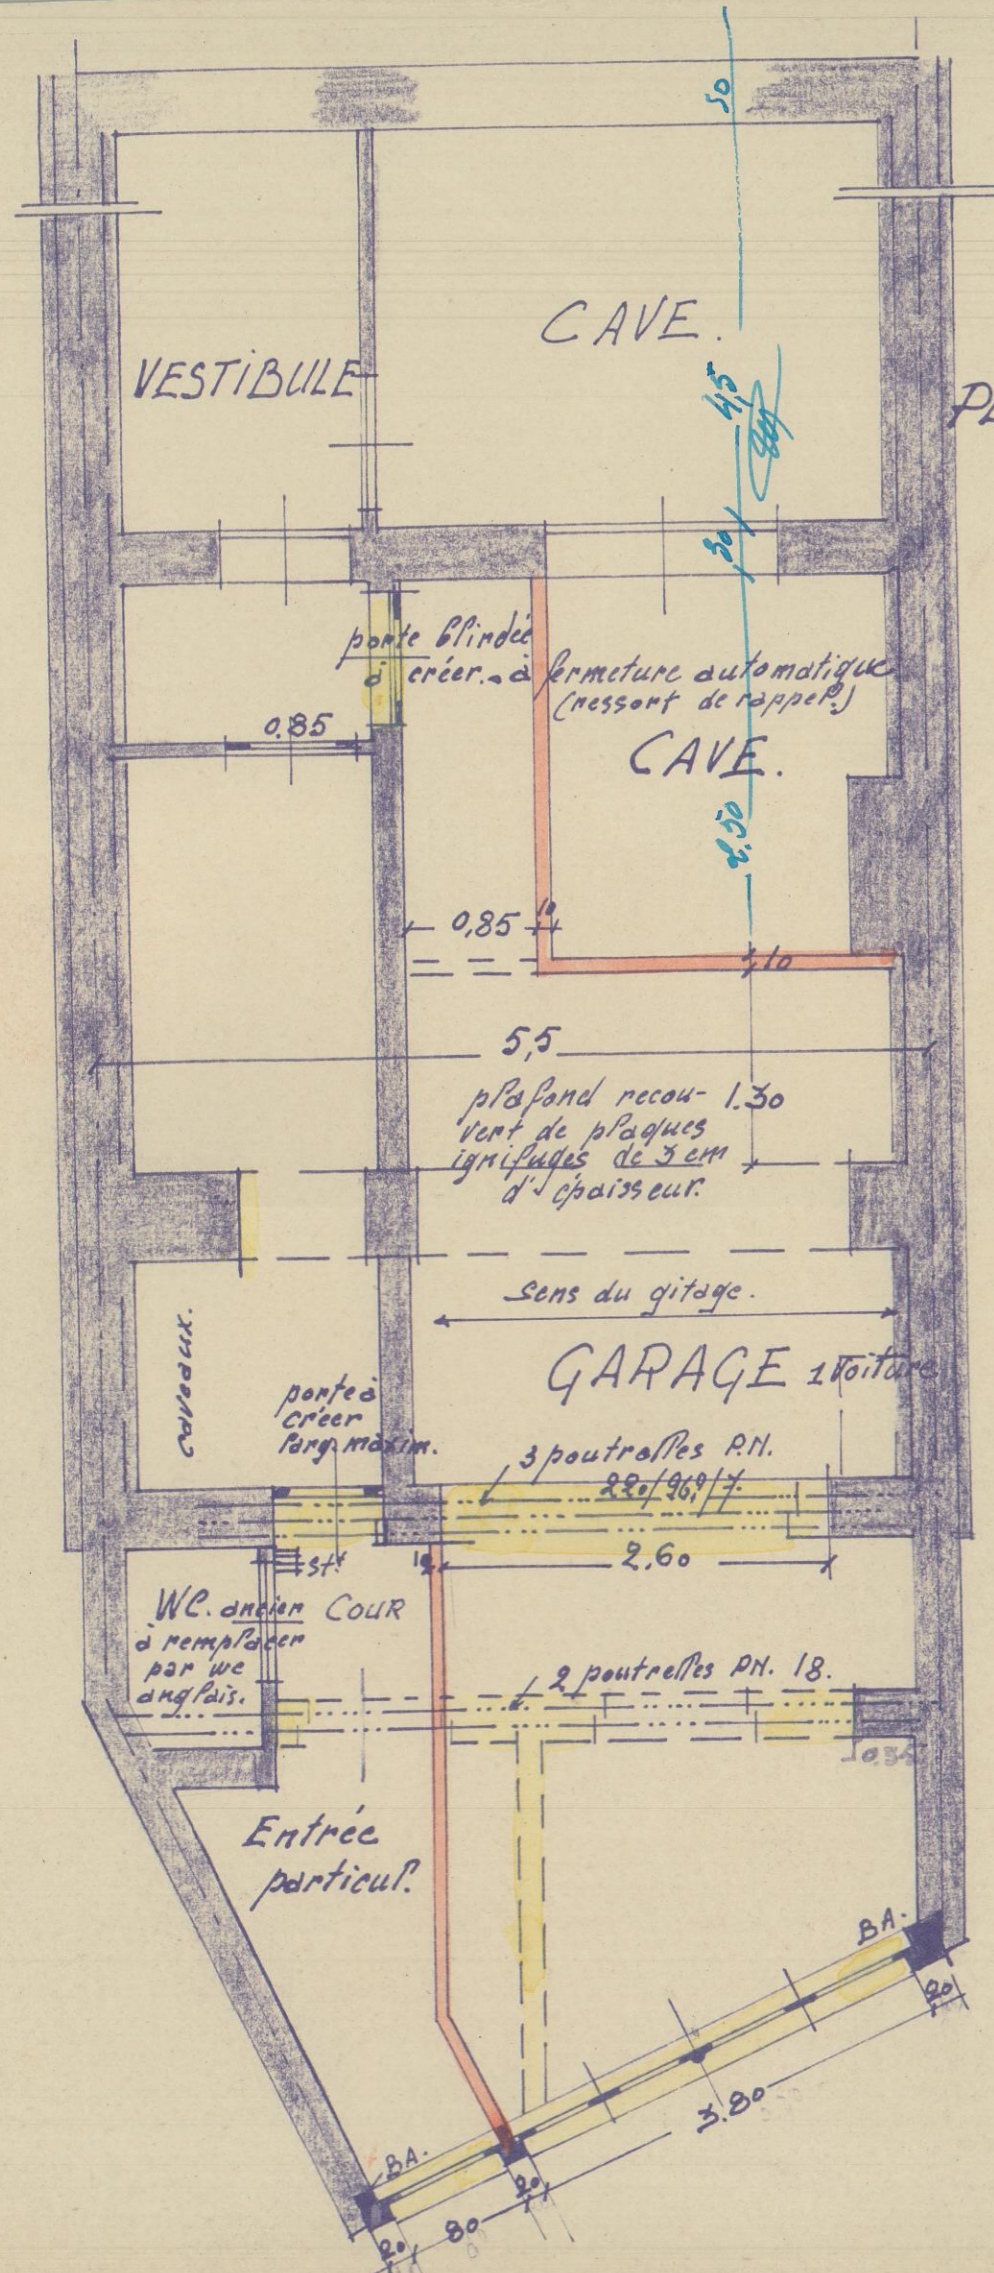 50
CAVE.
VESTIBULE
45
PL
30
porte blindée
à créer. à fermeture automatique
(ressort de rappel.)
0.85
CAVE.
2,50
0,85
10
10
5,5
plafond recou-
vert de plaques
ignifugés de 3 cm
d'épaisseur.
1.30
sens du gitage.
GARAGE 1 voiture
caveaux.
porte à
créer
larg. maxim.
3 poutrelles P.N.
St!
2.60
WC. ancien
à remplacer
par wc
anglais.
COUR
2 poutrelles PN. 18.
Entrée
particul.
BA.
20
3.80
BA.
20
80
20